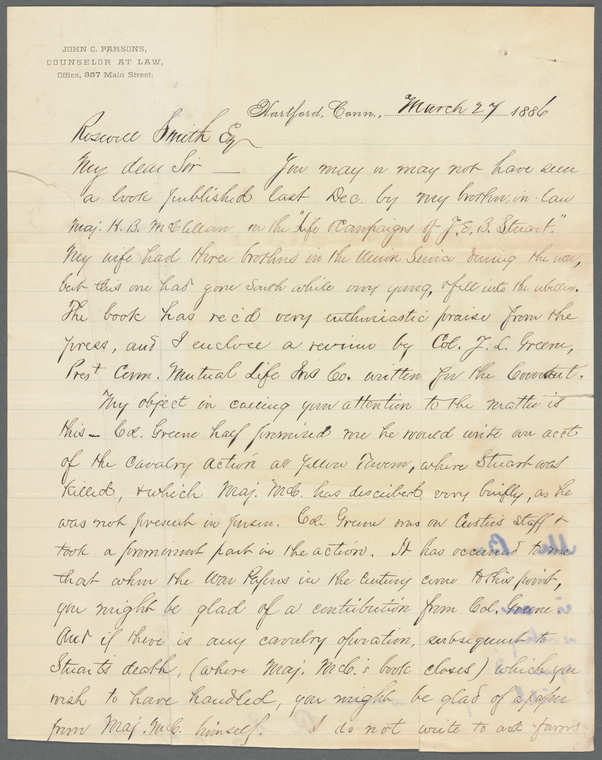 JOHN C. PARSONS,
COUNSELOR AT LAW,
Office, 387 Main Street.
Hartford, Conn., March 27 1886
Roswell Smith Esq
My dear Sir — You may or may not have seen
a book published last Dec. by my brother-in-law
Maj. H. B. McClellan on the "Life & Campaigns of J. E. B. Stuart."
My wife had three brothers in the Union Service during the war,
but this one had gone South while very young, & fell into the rebellion.
The book has rec'd very enthusiastic praise from the
press, and I enclose a review by Col. J. L. Greene,
Prest Conn. Mutual Life Ins Co. written for the Courant.
My object in calling your attention to the matter is
this – Col. Greene half promised me he would write an acct
of the Cavalry Action at Yellow Tavern, where Stuart was
killed, & which Maj. McC. has described very briefly, as he
was not present in person. Col. Greene was on Custer's staff &
took a prominent part in the action. It has occurred to me
that when the War Papers in the Century come to this point,
you might be glad of a contribution from Col. Greene
And if there is any cavalry operation, subsequent to
Stuart's death, (where Maj. McC.'s book closes) which you
wish to have handled, you might be glad of a paper
from Maj. McC. himself. I do not write to ask favors